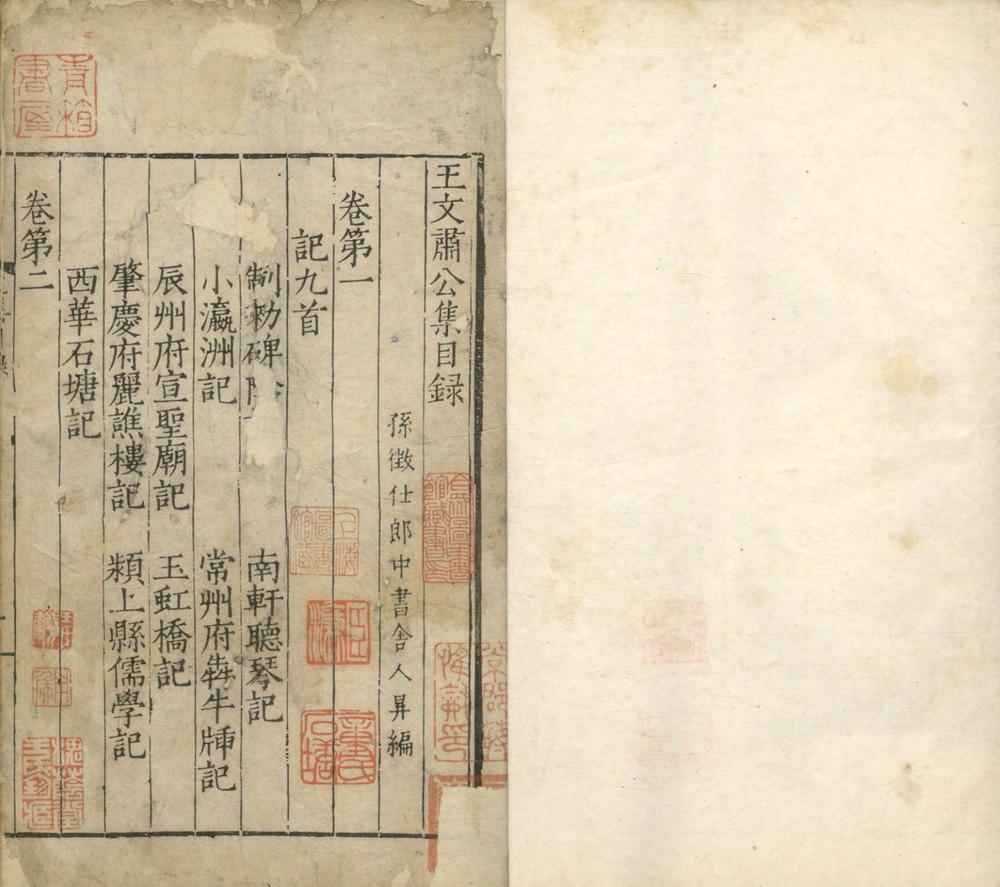 王文肅公集目録
孫徵仕郎中書舍人昇編
卷第一
記九首
制勑碑陰
南軒聽琴記
小瀛洲記
常州府犇牛牐記
辰州府宣聖廟記
玉虹橋記
肇慶府麗譙樓記
潁上縣儒學記
西華石塘記
卷第二
青箱書屋